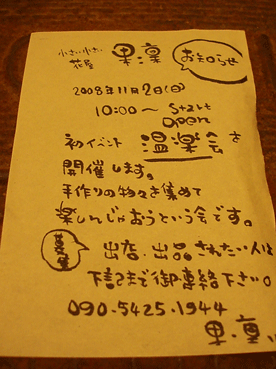 小さい小さい
花屋
果凛
お知らせ
2008年11月2日(日)
10:00〜 Start
Open
初イベント 温楽会を
開催します。
手作りの物々を集めて
楽しんじゃおうという会です。
出店・出品されたい人は
下記まで御連絡下さい。
090-5425-1944
果・凛